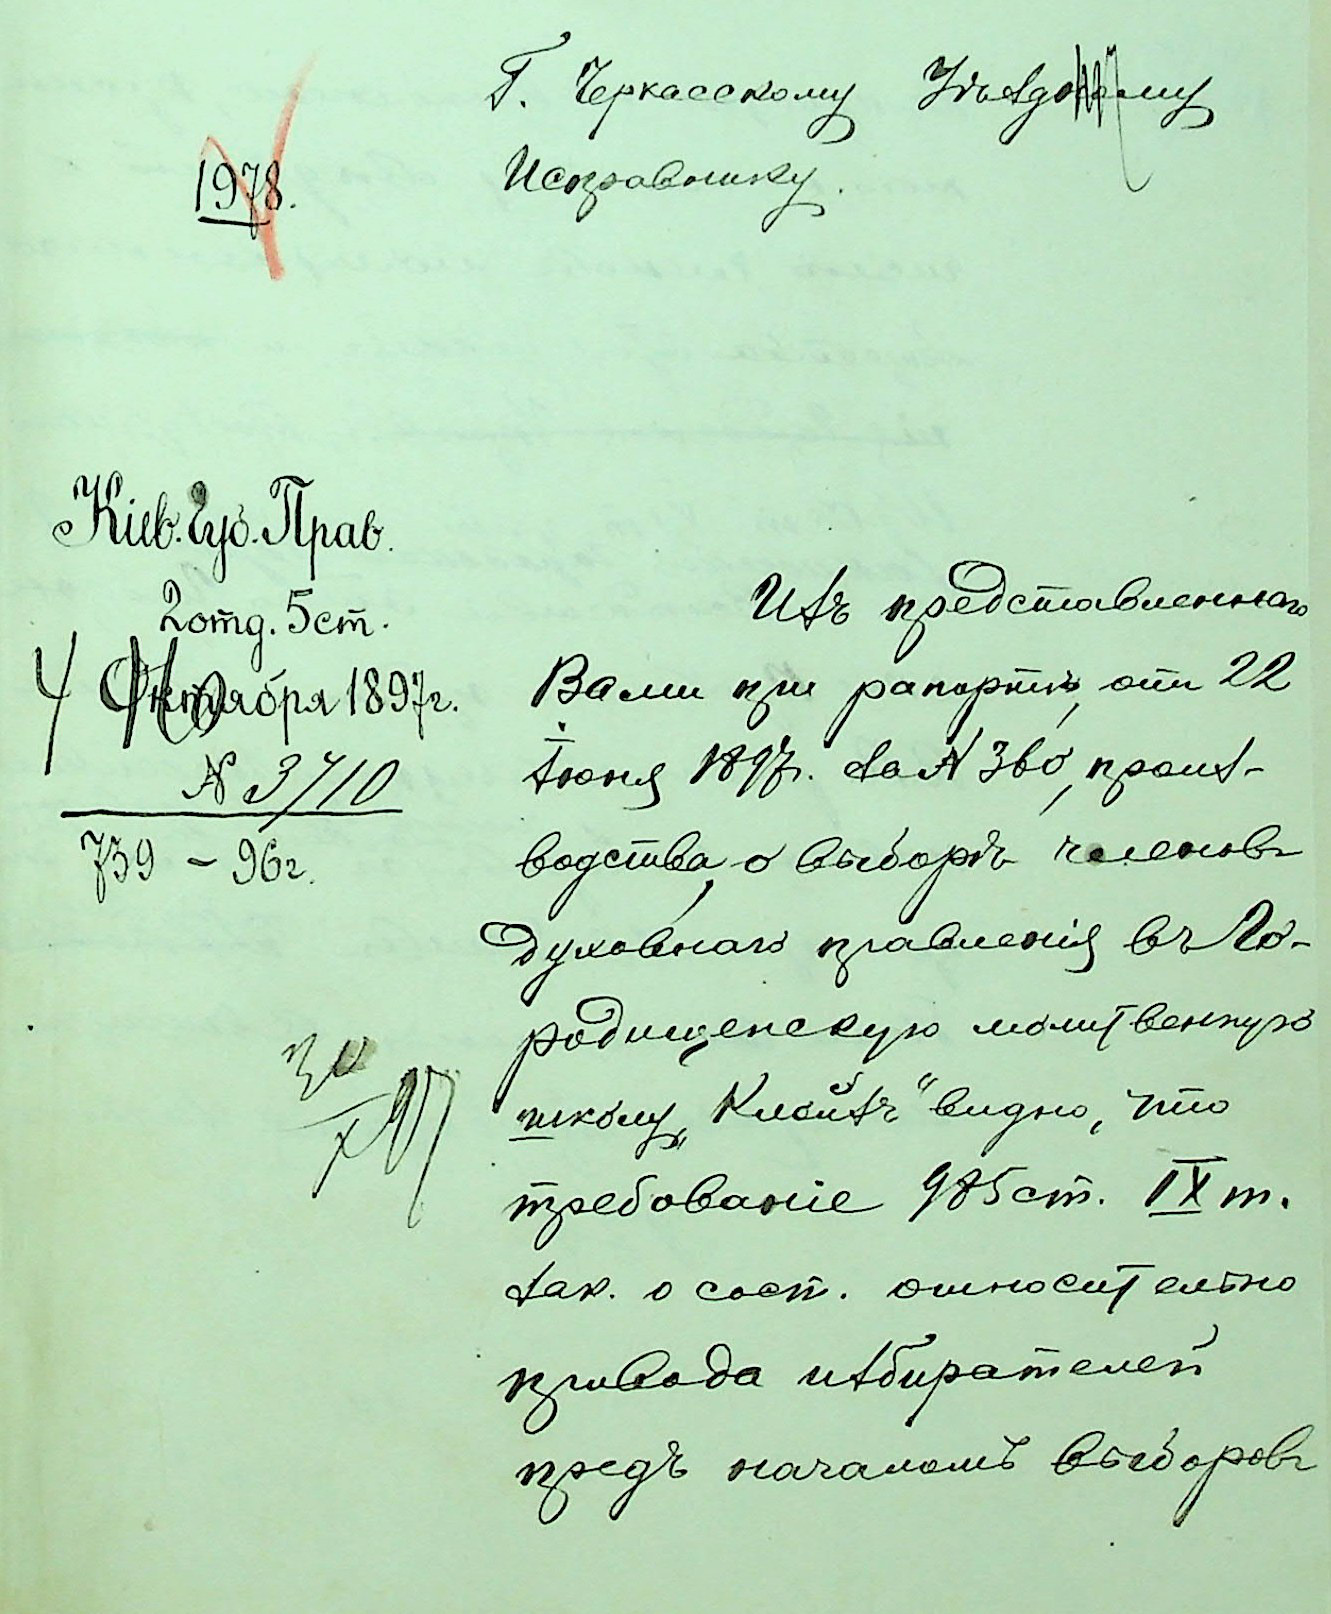 Г. Черкасскому Уѣздному
Исправнику.
1978.
Кіев. Губ. Прав.
2 отд. 5 ст.
4 Октября 1897 г.
№ 3710
739 – 96 г.
Изъ представленнаго
Вами при рапортѣ, отъ 22
Іюня 1897 г. за № 360, произ-
водства, о выборѣ членовъ
духовнаго правленія въ Го-
родищенскую молитвенную
школу „Клойзъ“ видно, что
требованіе 985 ст. IX т.
зак. о сост. относительно
привода избирателей
предъ началомъ выборовъ